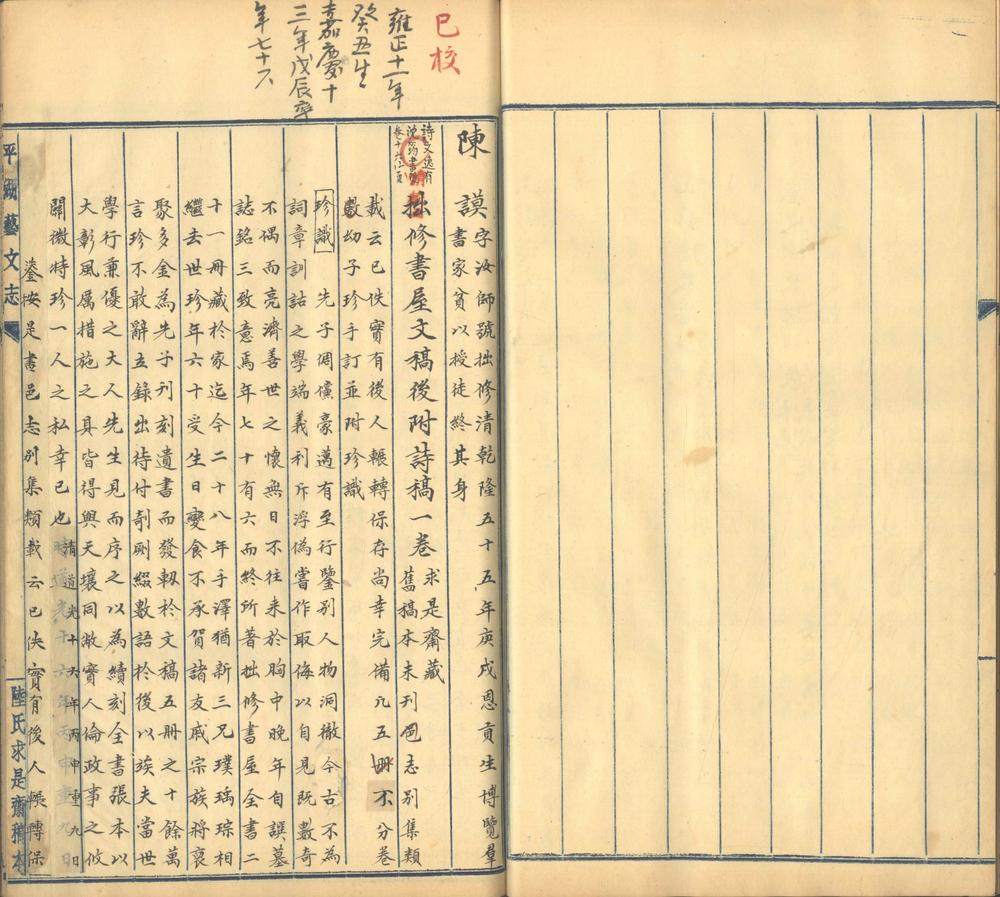 已校
雍正十一年
癸丑生
嘉慶十
三年戊辰卒
年七十六
陳謨字汝師號拙修清乾隆五十五年庚戌恩貢生博覽羣
書家貧以授徒終其身
詩文選有
卷十六
拙修書屋文稿後附詩稿一卷求是齋藏
舊稿本未刊邑志別集類
載云已佚實有後人輾轉保存尚幸完備凡五冊不分卷
數幼子珍手訂並附珍識
珍識 先子倜儻豪邁有至行鑒別人物洞徹今古不為
詞章訓詁之學端義利斥浮偽嘗作取侮以自見既數奇
不偶而亮濟善世之懷無日不往来於胸中晚年自譔墓
誌銘三致意焉年七十有六而終所著拙修書屋全書二
十一冊藏於家迄今二十八年手澤猶新三兄璞瑀琮相
繼去世珍年六十受生日變食不承賀諸友戚宗族將裒
聚多金為先子刊刻遺書而發軔於文稿五冊之十餘萬
言珍不敢辭立錄出待付剞劂綴數語於後以竢夫當世
學行兼優之大人先生見而序之以為續刻全書張本以
大彰風厲措施之具皆得與天壤同敝實人倫政事之攸
關微特珍一人之私幸已也
清道光十六年丙申重九日
鎏按是書邑志別集類載云已佚實有後人輾轉保
平湖藝文志
陸氏求是齋稿本